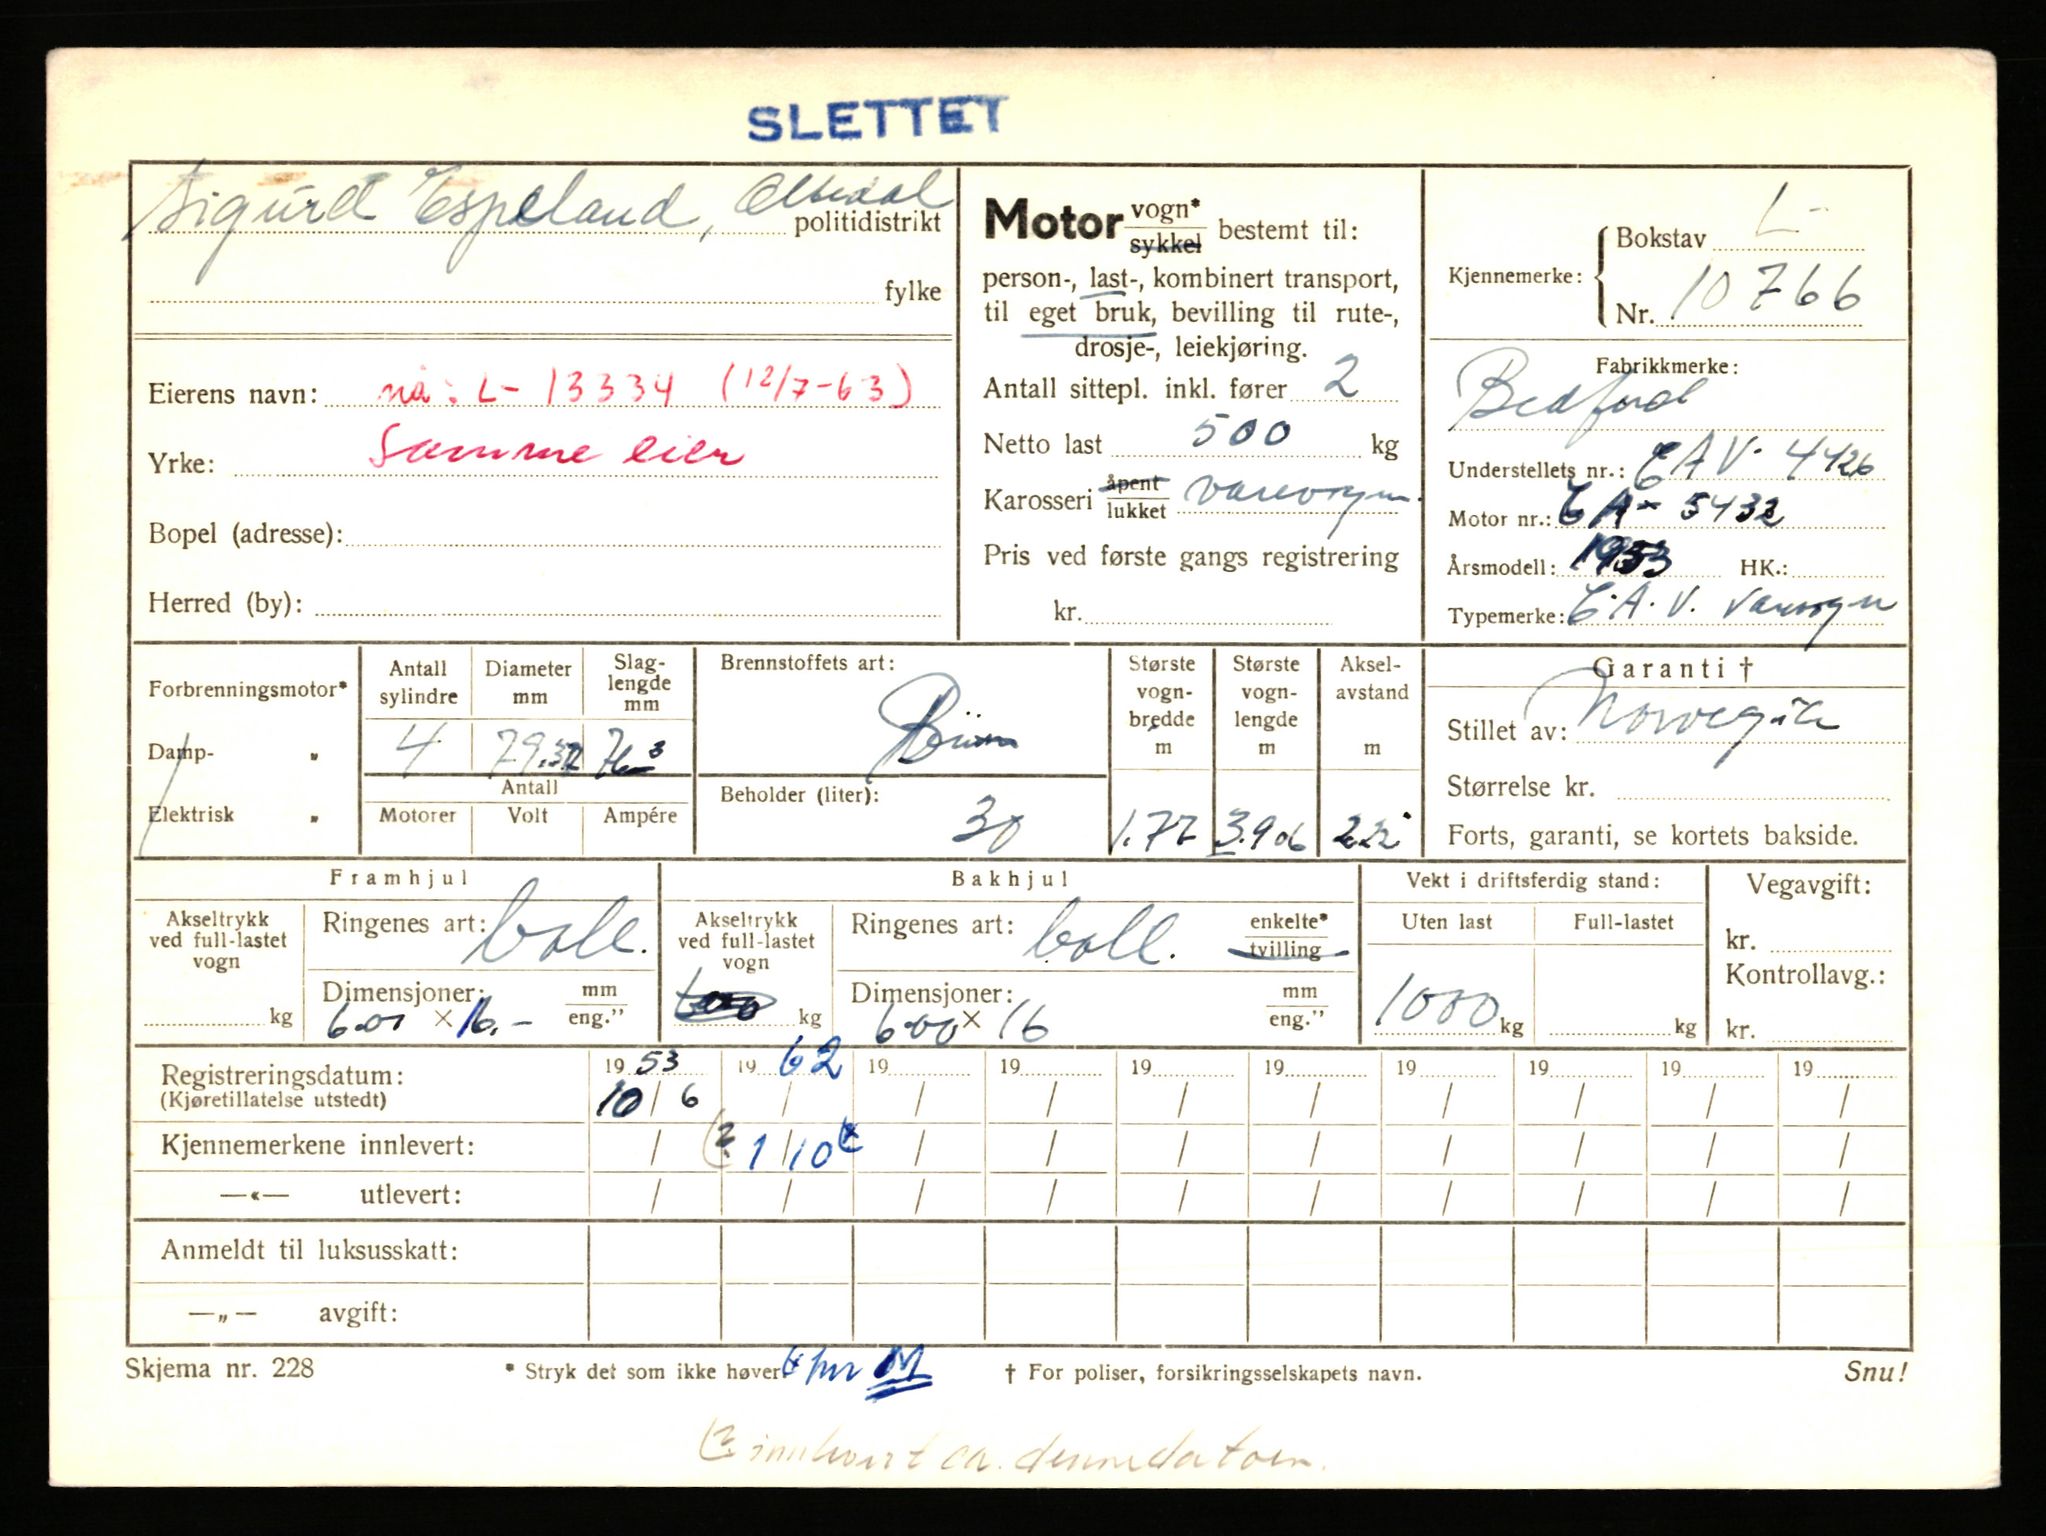 SLETTET
Sigurd Espeland, Oltedal politidistrikt
fylke
Eierens navn: nå: L- 13334 (12/7-63)
Yrke: Samme eier
Bopel (adresse):
Herred (by):
Motor vogn* sykkel bestemt til:
person-, last-, kombinert transport,
til eget bruk, bevilling til rute-,
drosje-, leiekjøring.
Antall sittepl. inkl. fører 2
Netto last 500 kg
Karosseri åpent lukket varevogn
Pris ved første gangs registrering
kr.
Kjennemerke: Bokstav L-
Nr. 10766
Fabrikkmerke:
Bedford
Understellets nr.: EAV. 4426
Motor nr.: EA- 5432
Årsmodell: 1953 HK.:
Typemerke: E.A.V. Varevogn
Forbrenningsmotor*
Damp- „
Elektrisk „
Antall sylindre Diameter mm Slag-lengde mm
4 79.37 76.3
Antall
Motorer Volt Ampére
Brennstoffets art:
Bensin
Beholder (liter):
30
Største vogn-bredde m
1.77
Største vogn-lengde m
3.906
Aksel-avstand m
2.22
Garanti †
Stillet av: Norvegia
Størrelse kr.
Forts, garanti, se kortets bakside.
Framhjul
Akseltrykk ved full-lastet vogn
kg
Ringenes art: ball.
Dimensjoner: mm eng.”
6.00 × 16.-
Bakhjul
Akseltrykk ved full-lastet vogn
kg
Ringenes art: ball. enkelte* tvilling
Dimensjoner: mm eng.”
600 × 16
Vekt i driftsferdig stand:
Uten last Full-lastet
1000 kg kg
Vegavgift:
kr.
Kontrollavg.:
kr.
Registreringsdatum: 1953 1962 19 19 19 19 19 19 19 19
(Kjøretillatelse utstedt) 10/6 / / / / / / / / /
Kjennemerkene innlevert: / (2 1/10 (x / / / / / / / /
—«— utlevert: / / / / / / / / / /
Anmeldt til luksusskatt:
—„— avgift:
Skjema nr. 228 * Stryk det som ikke høver (x M † For poliser, forsikringsselskapets navn. Snu!
(2 innlevert ca. denne datoen.